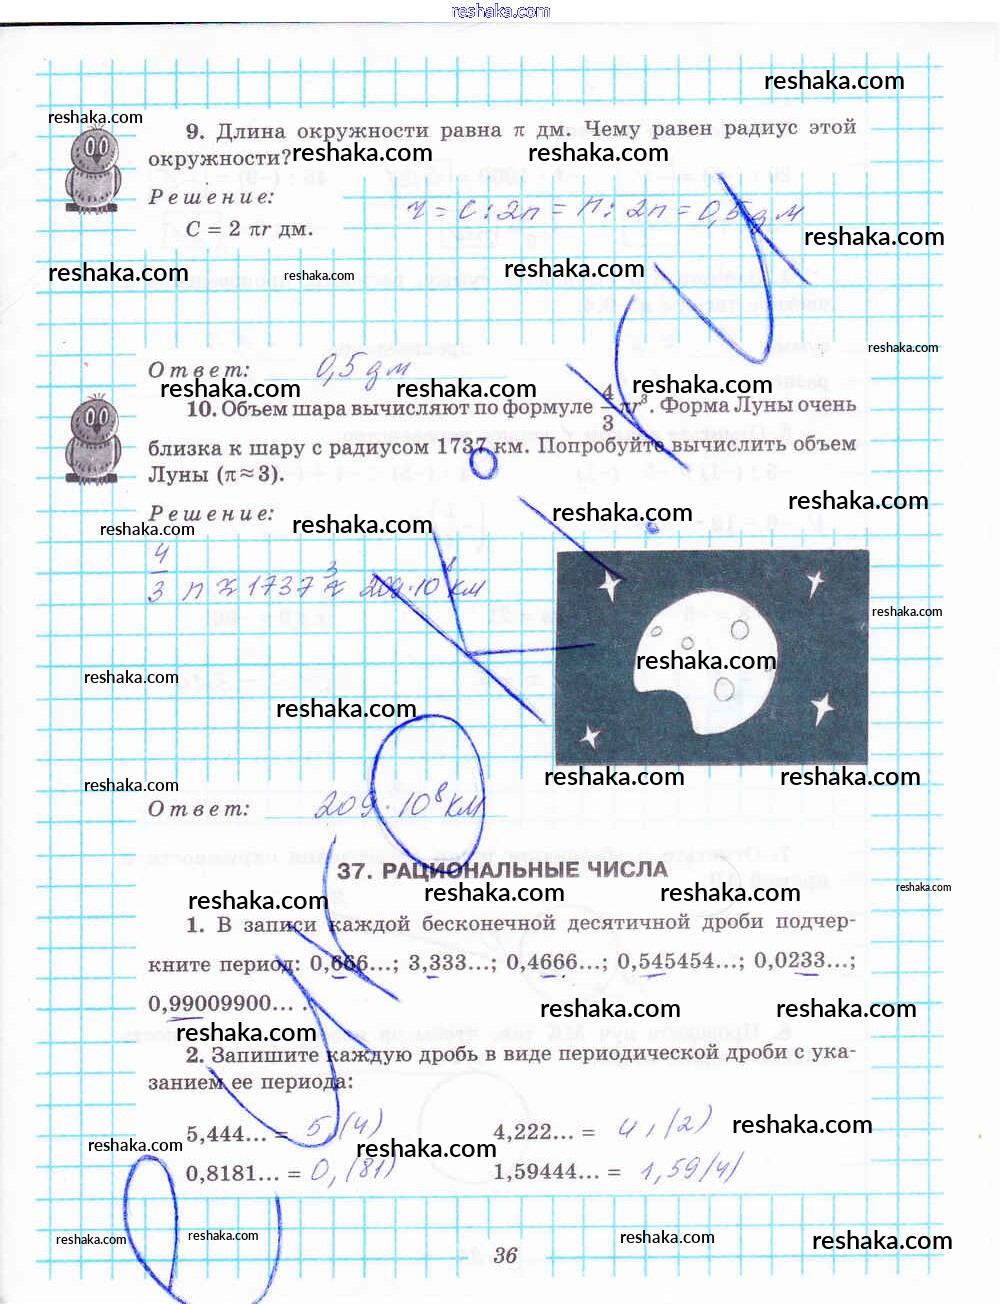 reshaka.com
reshaka.com
reshaka.com
9. Длина окружности равна π дм. Чему равен радиус этой
окружности?
reshaka.com reshaka.com
Решение:
r = C : 2π = π : 2π = 0,5 дм
C = 2 πr дм.
reshaka.com
reshaka.com reshaka.com reshaka.com
reshaka.com
Ответ: 0,5 дм
reshaka.com reshaka.com reshaka.com
10. Объем шара вычисляют по формуле 4/3 πr³. Форма Луны очень
близка к шару с радиусом 1737 км. Попробуйте вычислить объем
Луны (π≈3).
reshaka.com
Решение:
reshaka.com reshaka.com reshaka.com
4/3 π ≈ 1737³ ≈ 209·10⁸ км
reshaka.com
reshaka.com
reshaka.com
reshaka.com
reshaka.com reshaka.com reshaka.com
Ответ: 209·10⁸ км
37. РАЦИОНАЛЬНЫЕ ЧИСЛА
reshaka.com reshaka.com reshaka.com reshaka.com
1. В записи каждой бесконечной десятичной дроби подчер-
кните период: 0,666...; 3,333...; 0,4666...; 0,545454...; 0,0233...;
0,99009900... .
reshaka.com reshaka.com
reshaka.com
2. Запишите каждую дробь в виде периодической дроби с ука-
занием ее периода:
5,444... = 5,(4) 4,222... = 4,(2)
reshaka.com
reshaka.com reshaka.com
0,8181... = 0,(81) 1,59444... = 1,59(4)
reshaka.com reshaka.com reshaka.com reshaka.com
36